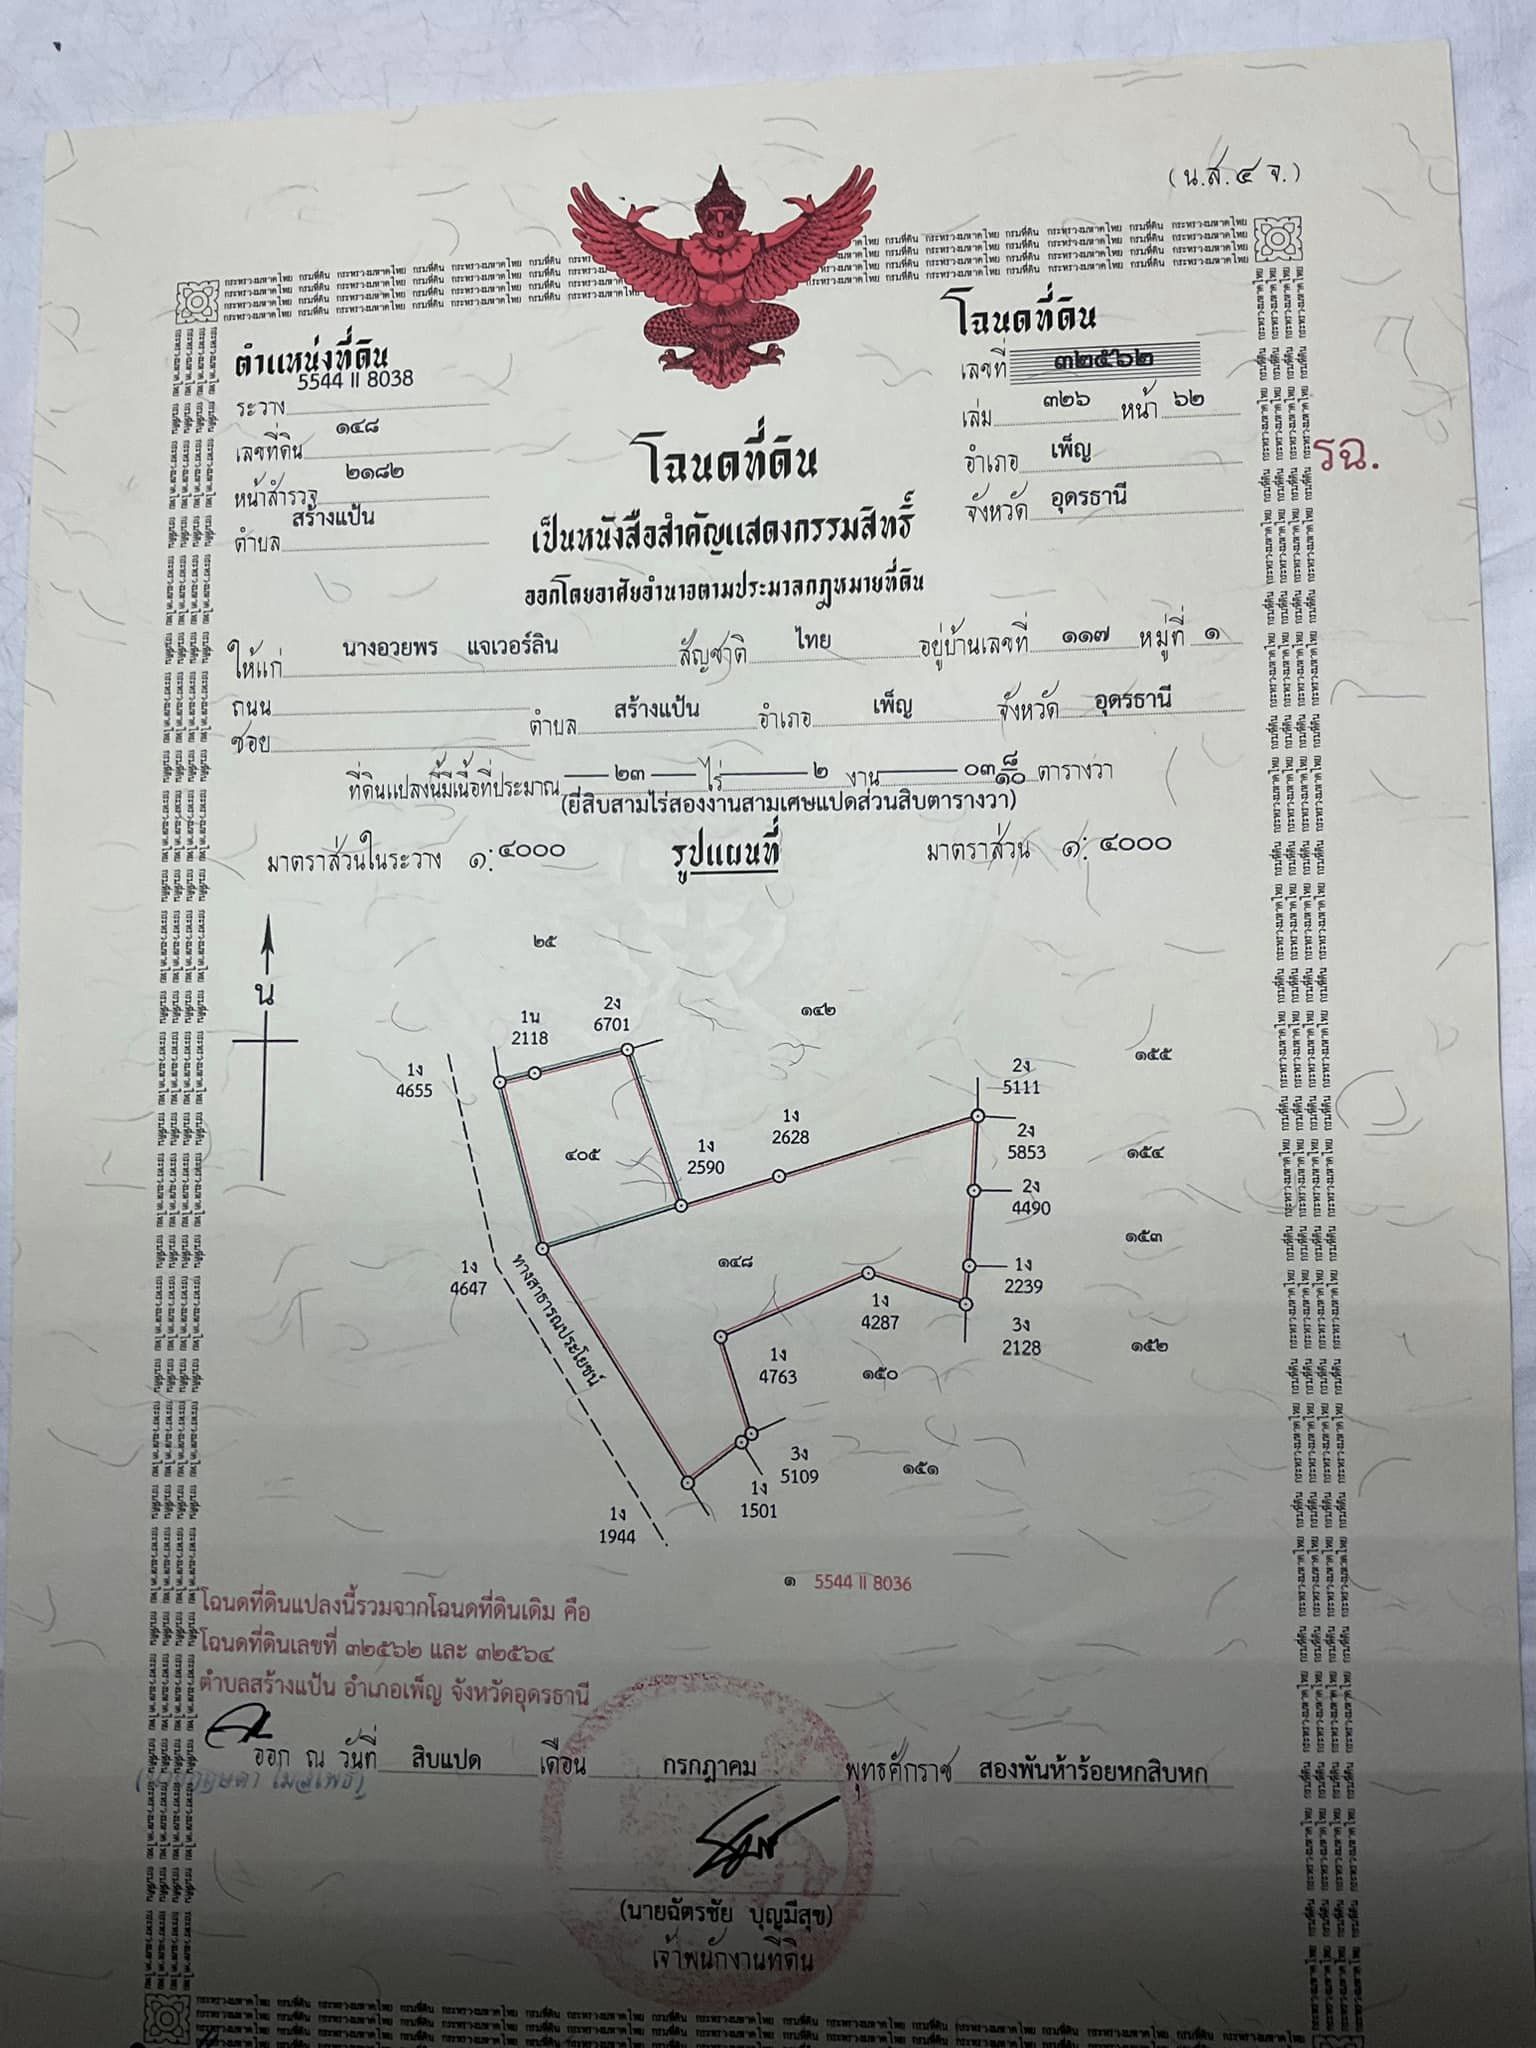 (น.ส.๔ จ.)
ตำแหน่งที่ดิน
ระวาง 5544 II 8038
เลขที่ดิน ๑๔๘
หน้าสำรวจ ๒๑๘๒
ตำบล สร้างแป้น
โฉนดที่ดิน
เลขที่ ๓๒๕๖๒
เล่ม ๓๒๖ หน้า ๖๒
อำเภอ เพ็ญ
จังหวัด อุดรธานี
รฉ.
โฉนดที่ดิน
เป็นหนังสือสำคัญแสดงกรรมสิทธิ์
ออกโดยอาศัยอำนาจตามประมวลกฎหมายที่ดิน
ให้แก่ นางอวยพร แจเวอร์ลิน สัญชาติ ไทย อยู่บ้านเลขที่ ๑๑๗ หมู่ที่ ๑
ถนน
ซอย
ตำบล สร้างแป้น อำเภอ เพ็ญ จังหวัด อุดรธานี
ที่ดินแปลงนี้มีเนื้อที่ประมาณ ๒๓ ไร่ ๒ งาน ๐๓ ๘/๑๐ ตารางวา
(ยี่สิบสามไร่สองงานสามเศษแปดส่วนสิบตารางวา)
มาตราส่วนในระวาง ๑:๔๐๐๐ รูปแผนที่ มาตราส่วน ๑:๔๐๐๐
น
๒๕
๑๔๒
1น
2118
2ง
6701
1ง
4655
๑๕๕
2ง
5111
1ง
2628
๔๐๕
1ง
2590
2ง
5853
๑๕๔
2ง
4490
๑๕๓
๑๔๘
1ง
4647
1ง
2239
ทางสาธารณประโยชน์
1ง
4287
3ง
2128
๑๕๒
1ง
4763
๑๕๐
3ง
5109
๑๕๑
1ง
1501
1ง
1944
๑ 5544 II 8036
โฉนดที่ดินแปลงนี้รวมจากโฉนดที่ดินเดิม คือ
โฉนดที่ดินเลขที่ ๓๒๕๖๒ และ ๓๒๕๖๔
ตำบลสร้างแป้น อำเภอเพ็ญ จังหวัดอุดรธานี
ออก ณ วันที่ สิบแปด เดือน กรกฎาคม พุทธศักราช สองพันห้าร้อยหกสิบหก
(นายฉัตรชัย บุญมีสุข)
เจ้าพนักงานที่ดิน
กระทรวงมหาดไทย กรมที่ดิน